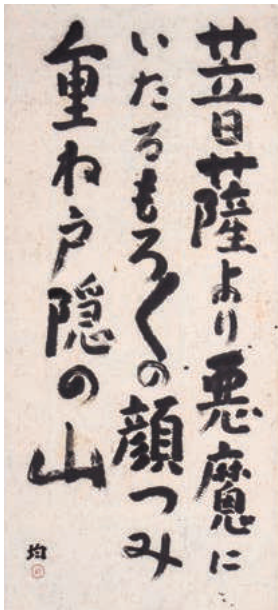 菩薩より悪魔に
いたるもろ〱の顔つみ
重ね戸隠の山
均